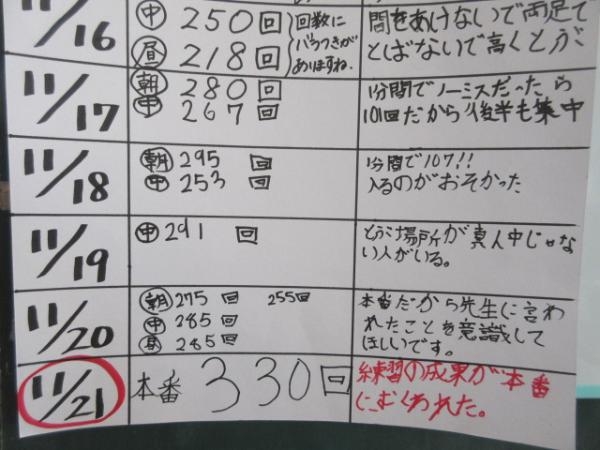 11/16
中 250回
昼 218回
回数に
バラつきが
ありますね。
間をあけないで両足で
とばないで高くとぶ
11/17
朝 280回
中 267回
1分間でノーミスだったら
101回だから後半も集中
11/18
朝 295 回
中 253 回
1分間で107!!
入るのがおそかった
11/19
中 291 回
とぶ場所が真人中じゃな
い人がいる。
11/20
朝 275 回 255回
中 285 回
昼 285回
本番だから先生に言わ
れたことを意識して
ほしいです。
11/21
本番 330回
練習の成果が本番
にむくわれた。